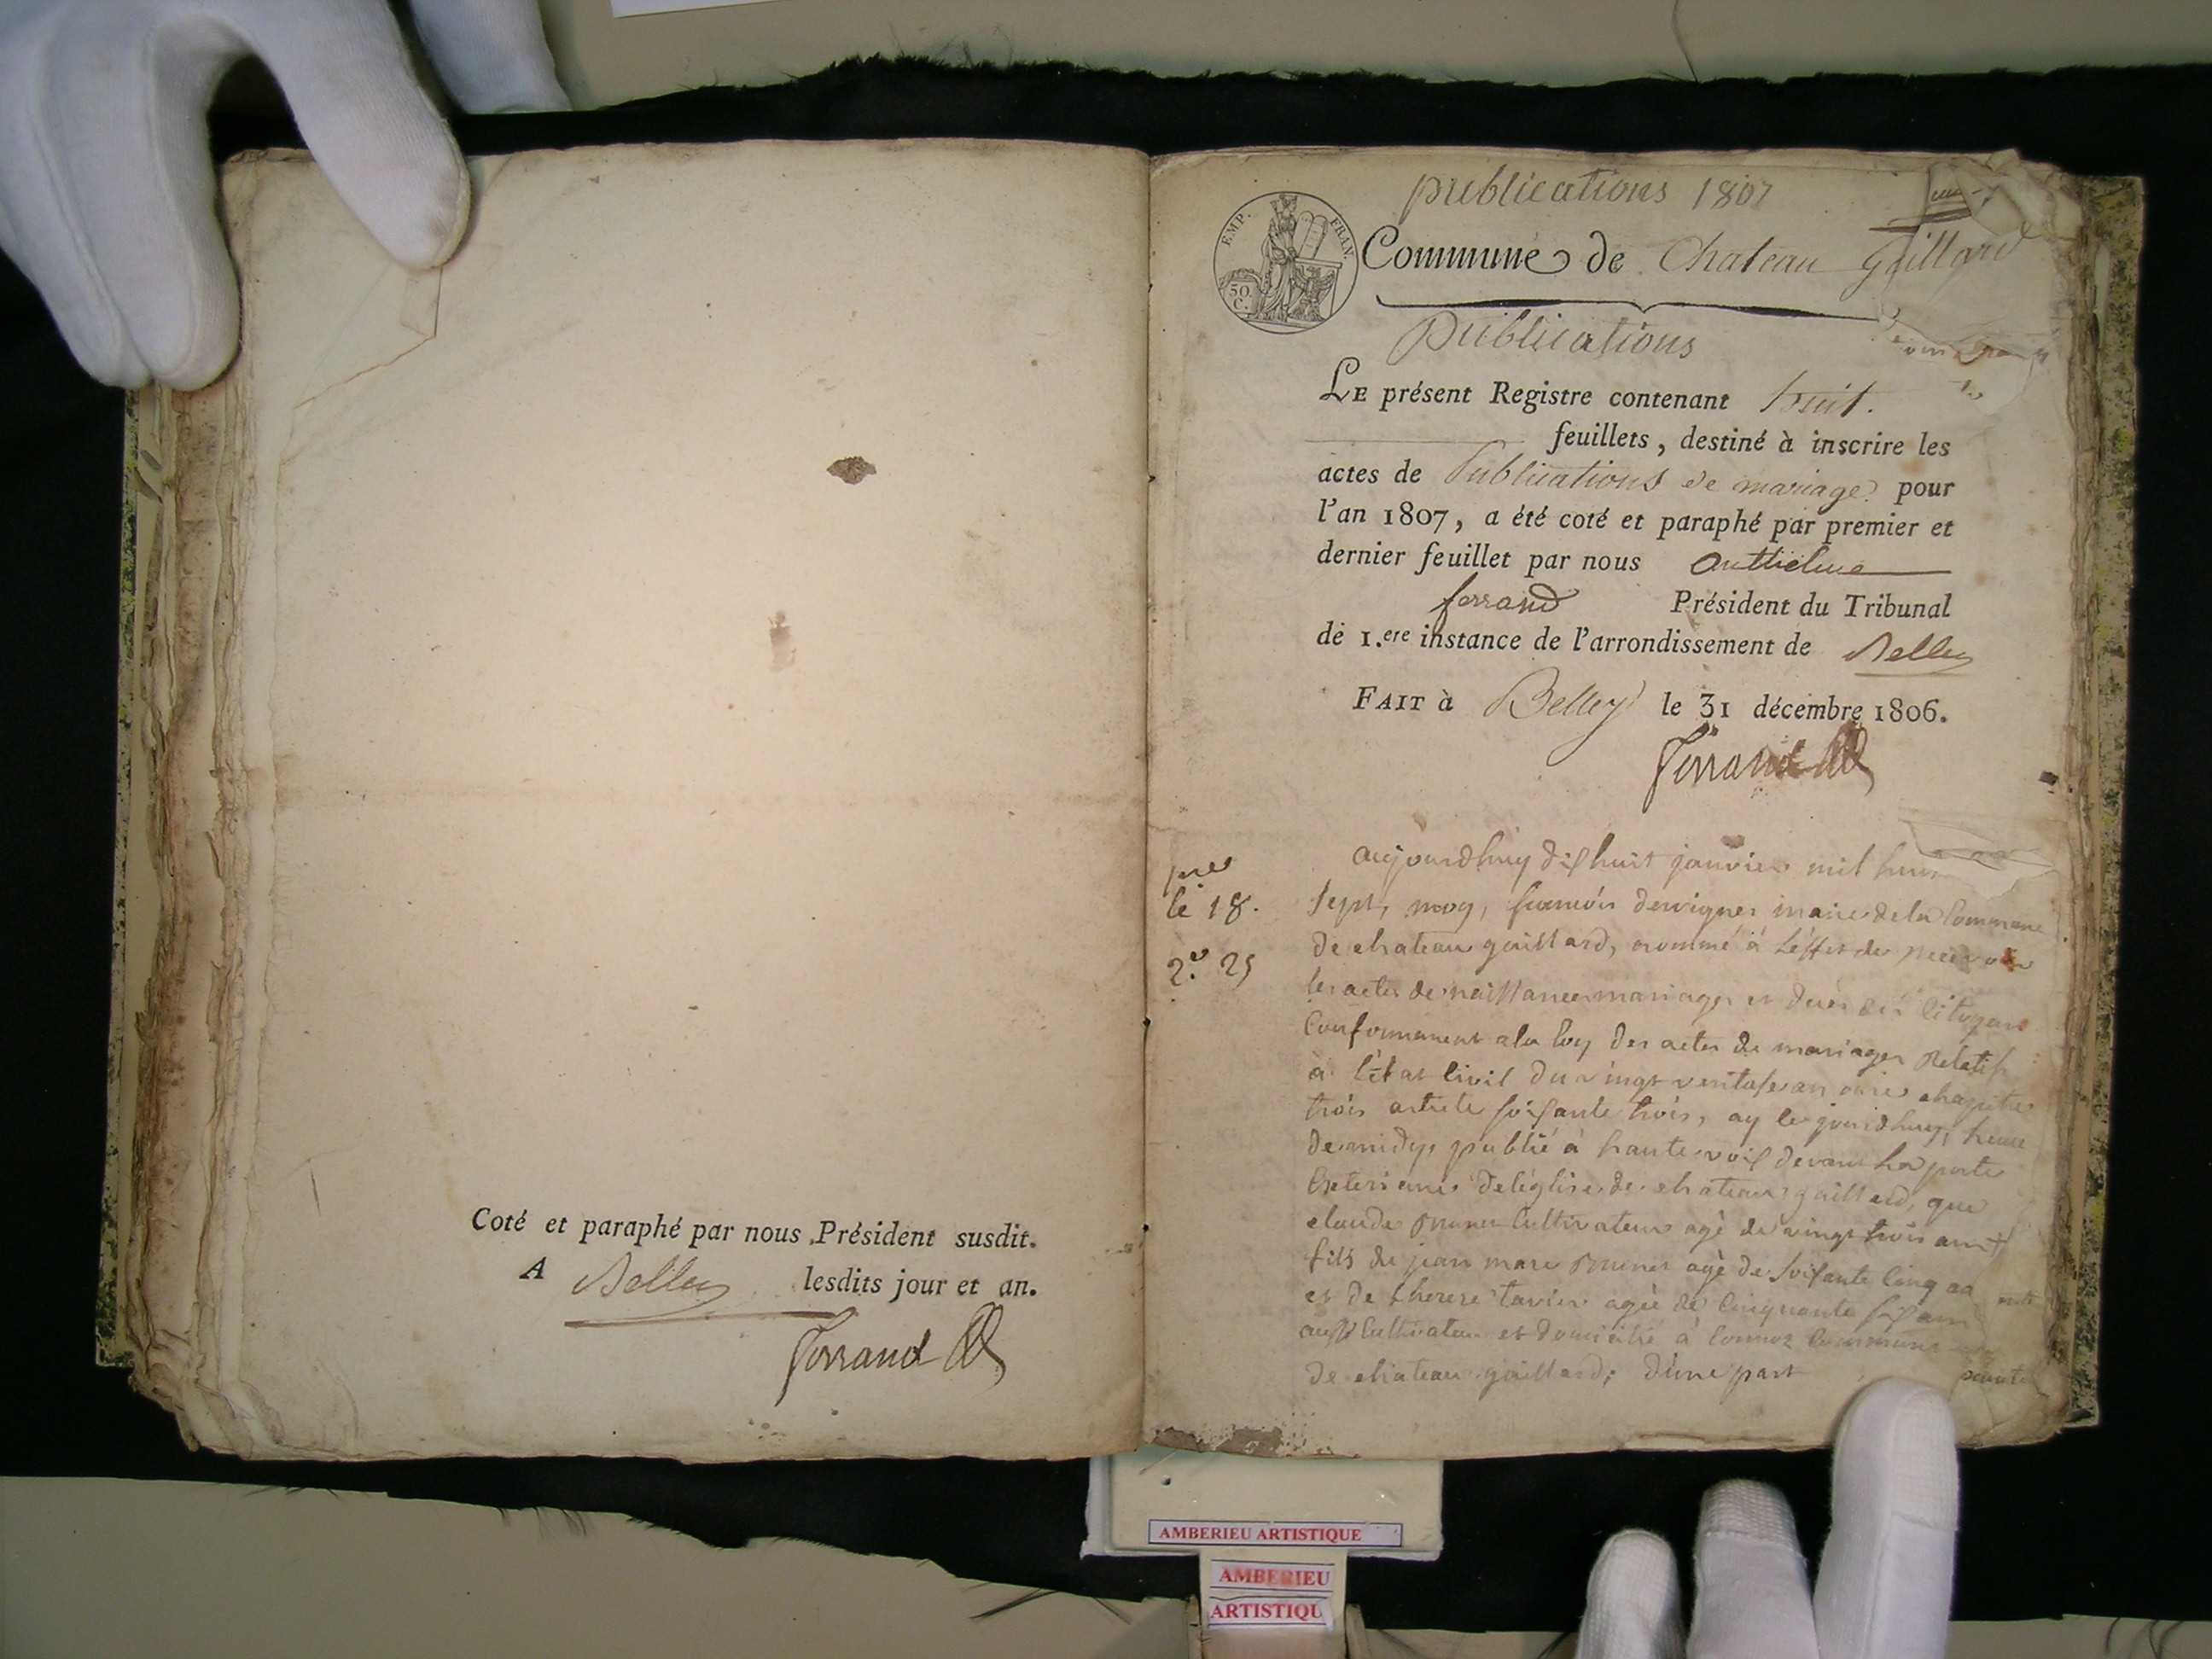 Coté et paraphé par nous Président susdit.
A Belley lesdits jour et an.
Ferrand
publications 1807
EMP. FRAN.
50 C.
Commune de Chateau Gaillard
Publications
LE présent Registre contenant huit.
feuillets, destiné à inscrire les
actes de Publications de mariage pour
l'an 1807, a été coté et paraphé par premier et
dernier feuillet par nous Anthelme
ferrand Président du Tribunal
de 1.ere instance de l'arrondissement de Belley
FAIT à Belley le 31 décembre 1806.
Ferrand
pre
le 18.
2.e 25
aujourdhuy dixhuit janvier mil huit
sept, moy, francois dervignes maire de la Commune
de chateau gaillard, nommé à l'éffet de recevoir
les actes de naissances mariages et decès des Citoyens
Conformement a la loy des actes de mariages Relatifs
à l'état Civil du vingt ventose an onze chapitre
trois article soixante trois, ay le jourdhuy, heure
de midy, publié à haute voix devant la porte
Exterieure de l'église de chateau gaillard, que
claude Cultivateur agé de vingt trois ans
fils de jean marc agé de soixante Cinq an
et de therese tavier agée de Cinquante six ans
aussi Cultivateur et domicilié à Cormoz Commune
de chateau gaillard; d'une part
AMBERIEU ARTISTIQUE
AMBERIEU
ARTISTIQU